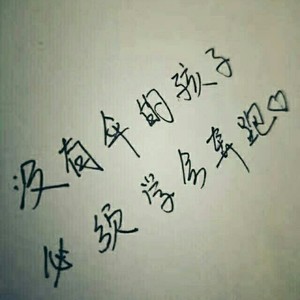 没有伞的孩子
必须学会奔跑♡